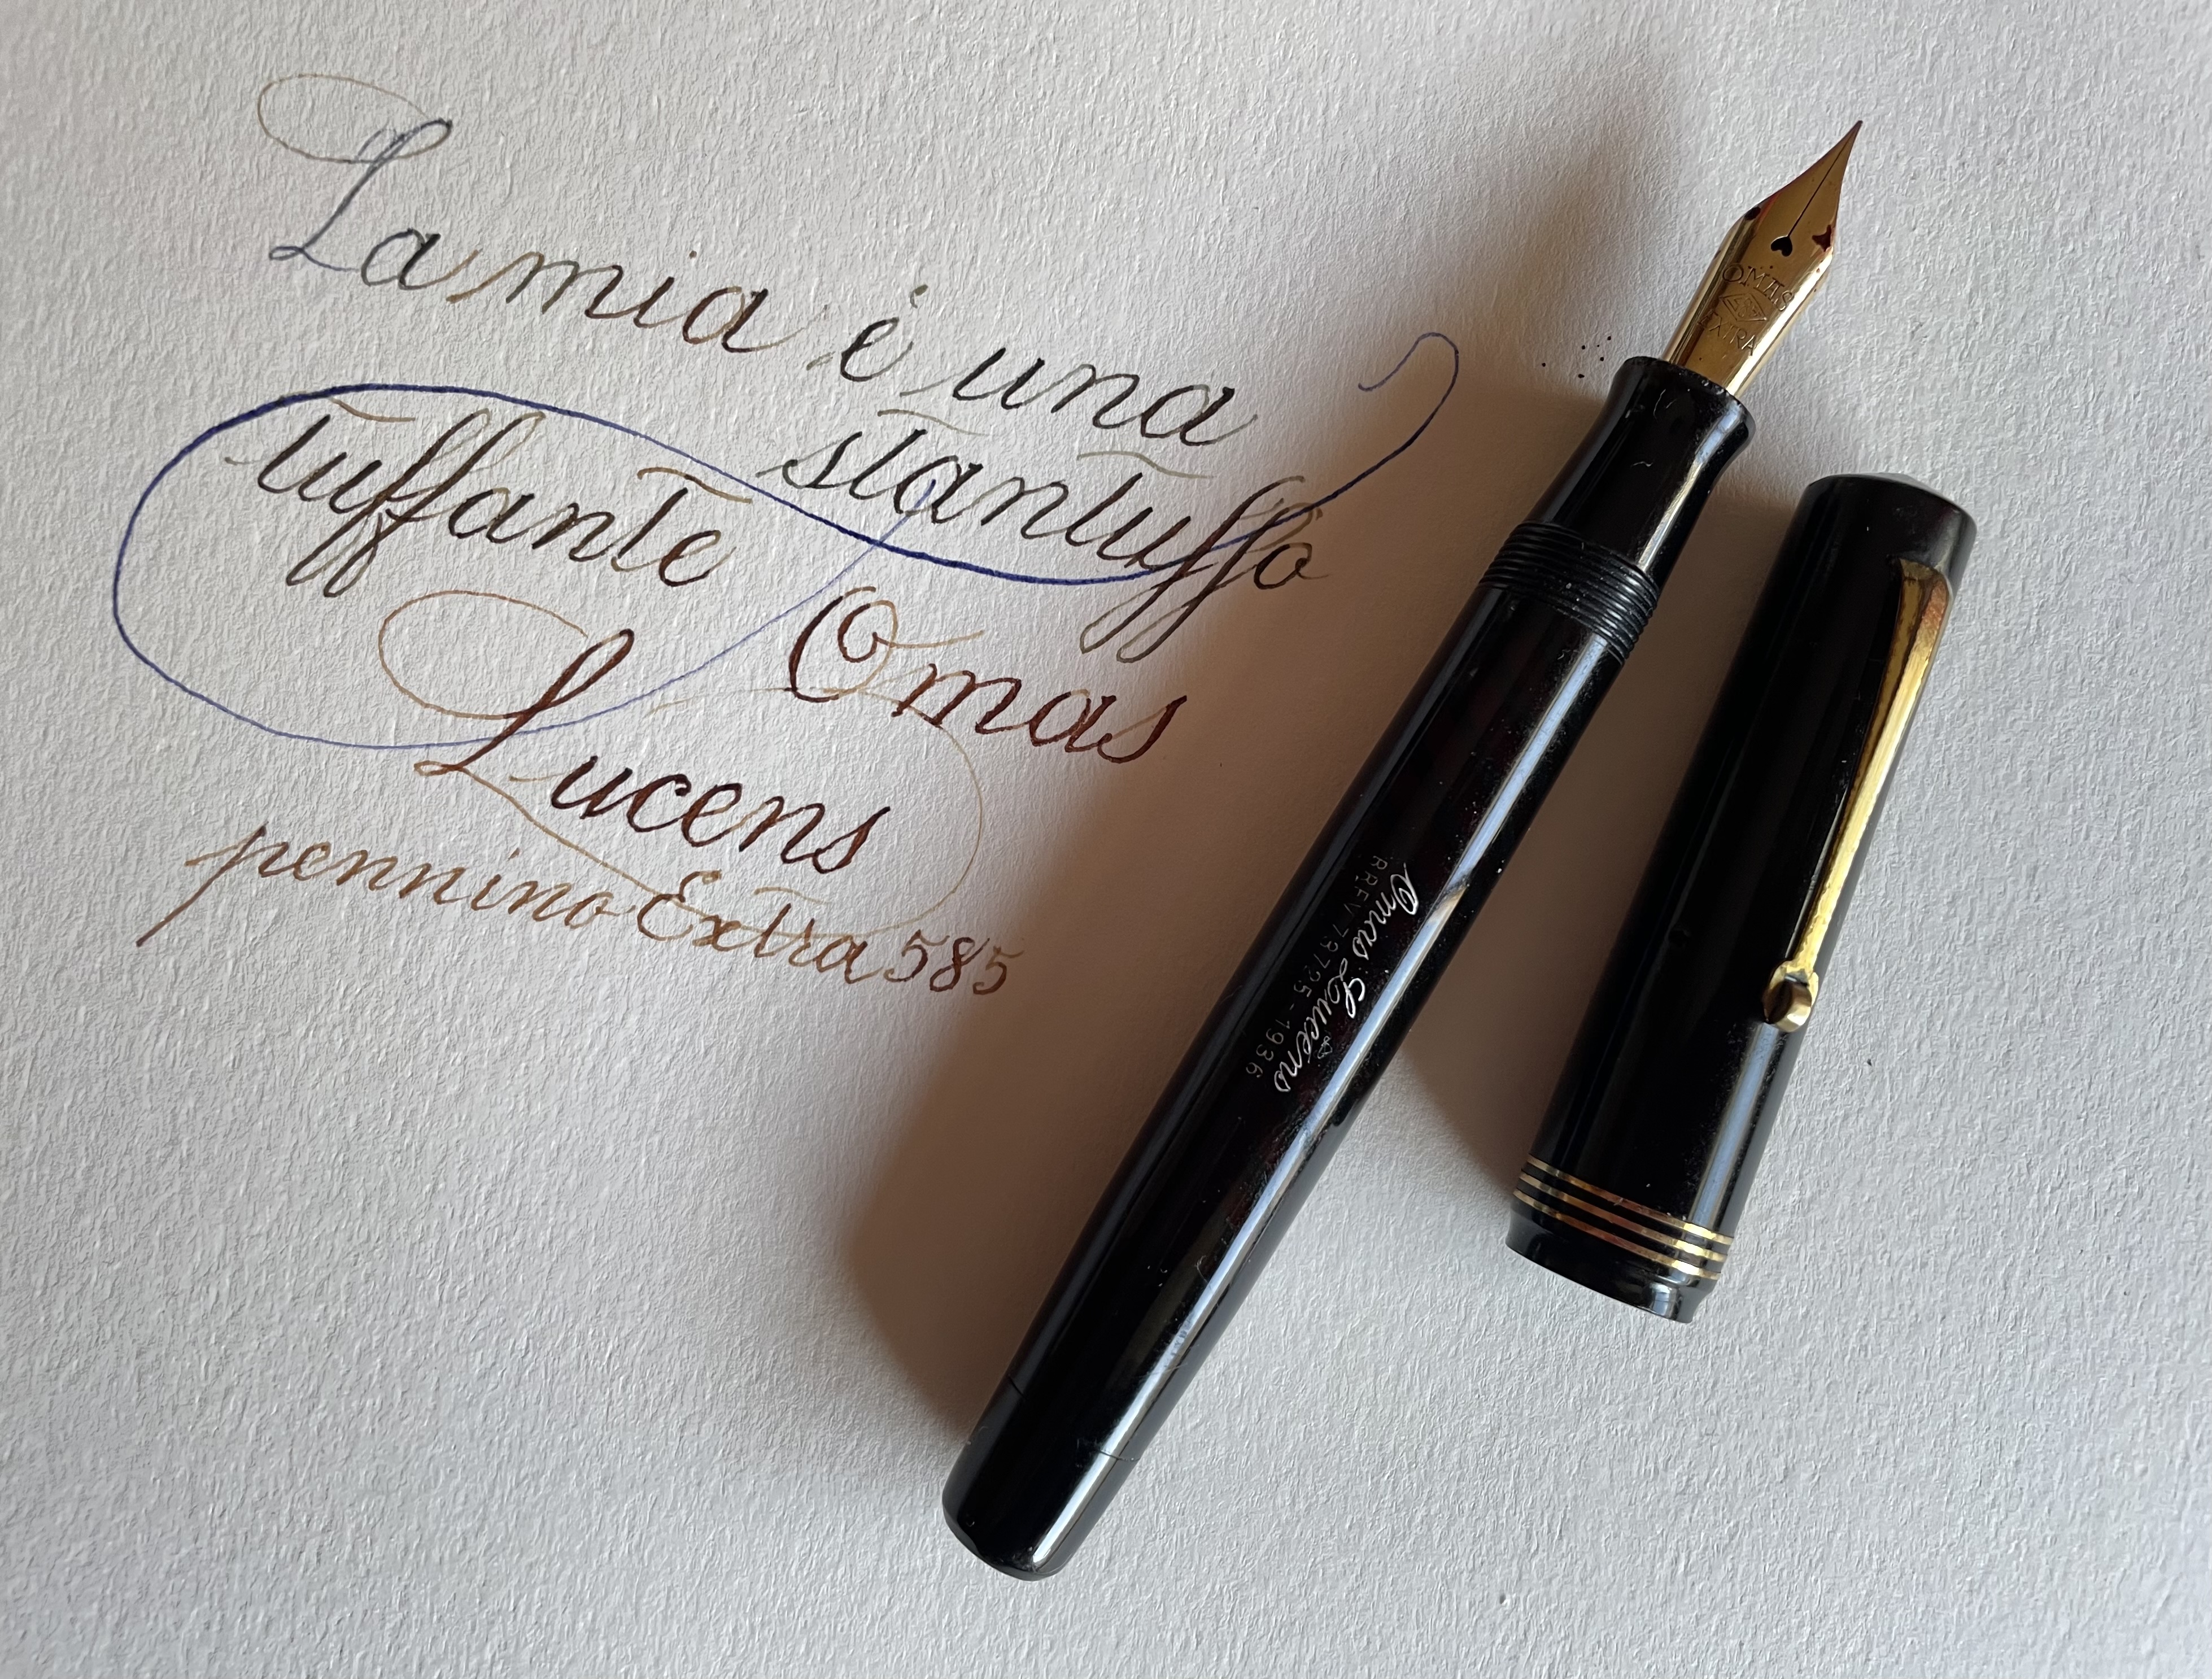 La mia è una
stantuffo
tuffante
Omas
Lucens
pennino Extra 585
OMAS
EXTRA
Omas Lucens
BREV. 73725-1936